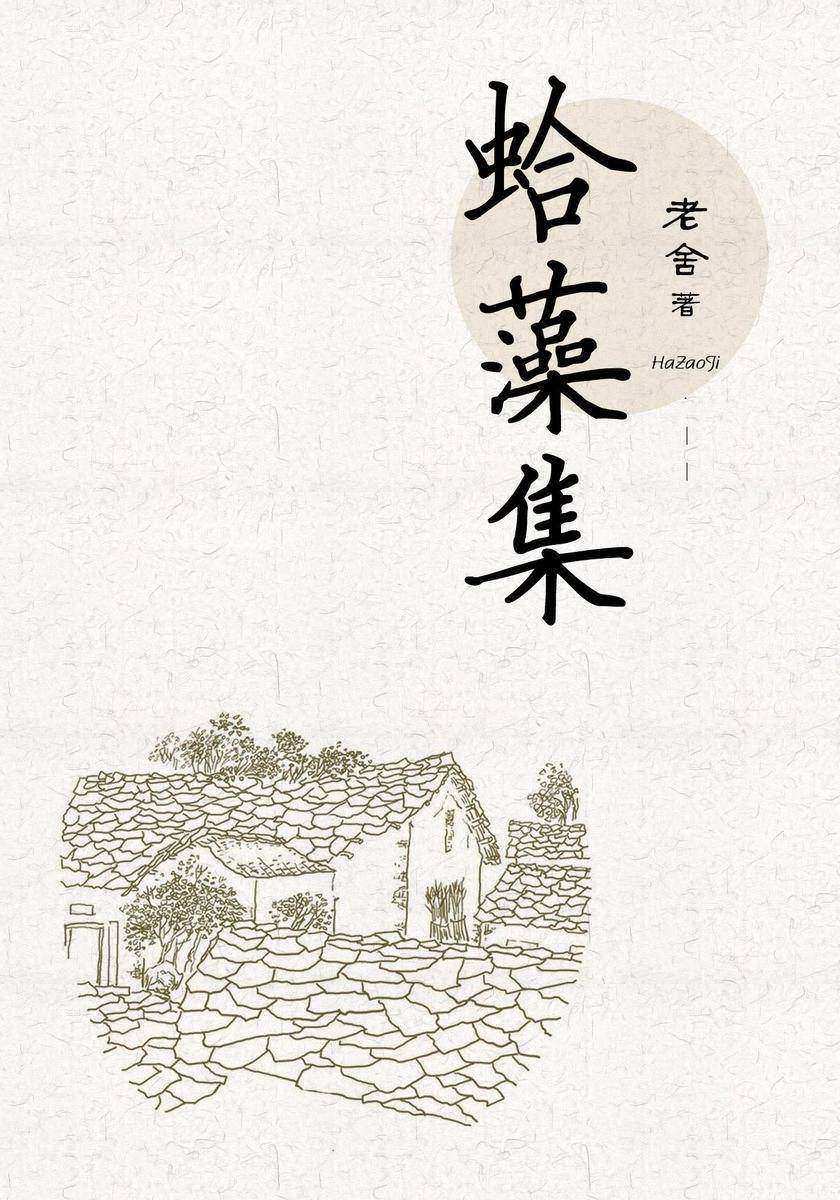 蛤藻集
老舍著
HaZaoJi